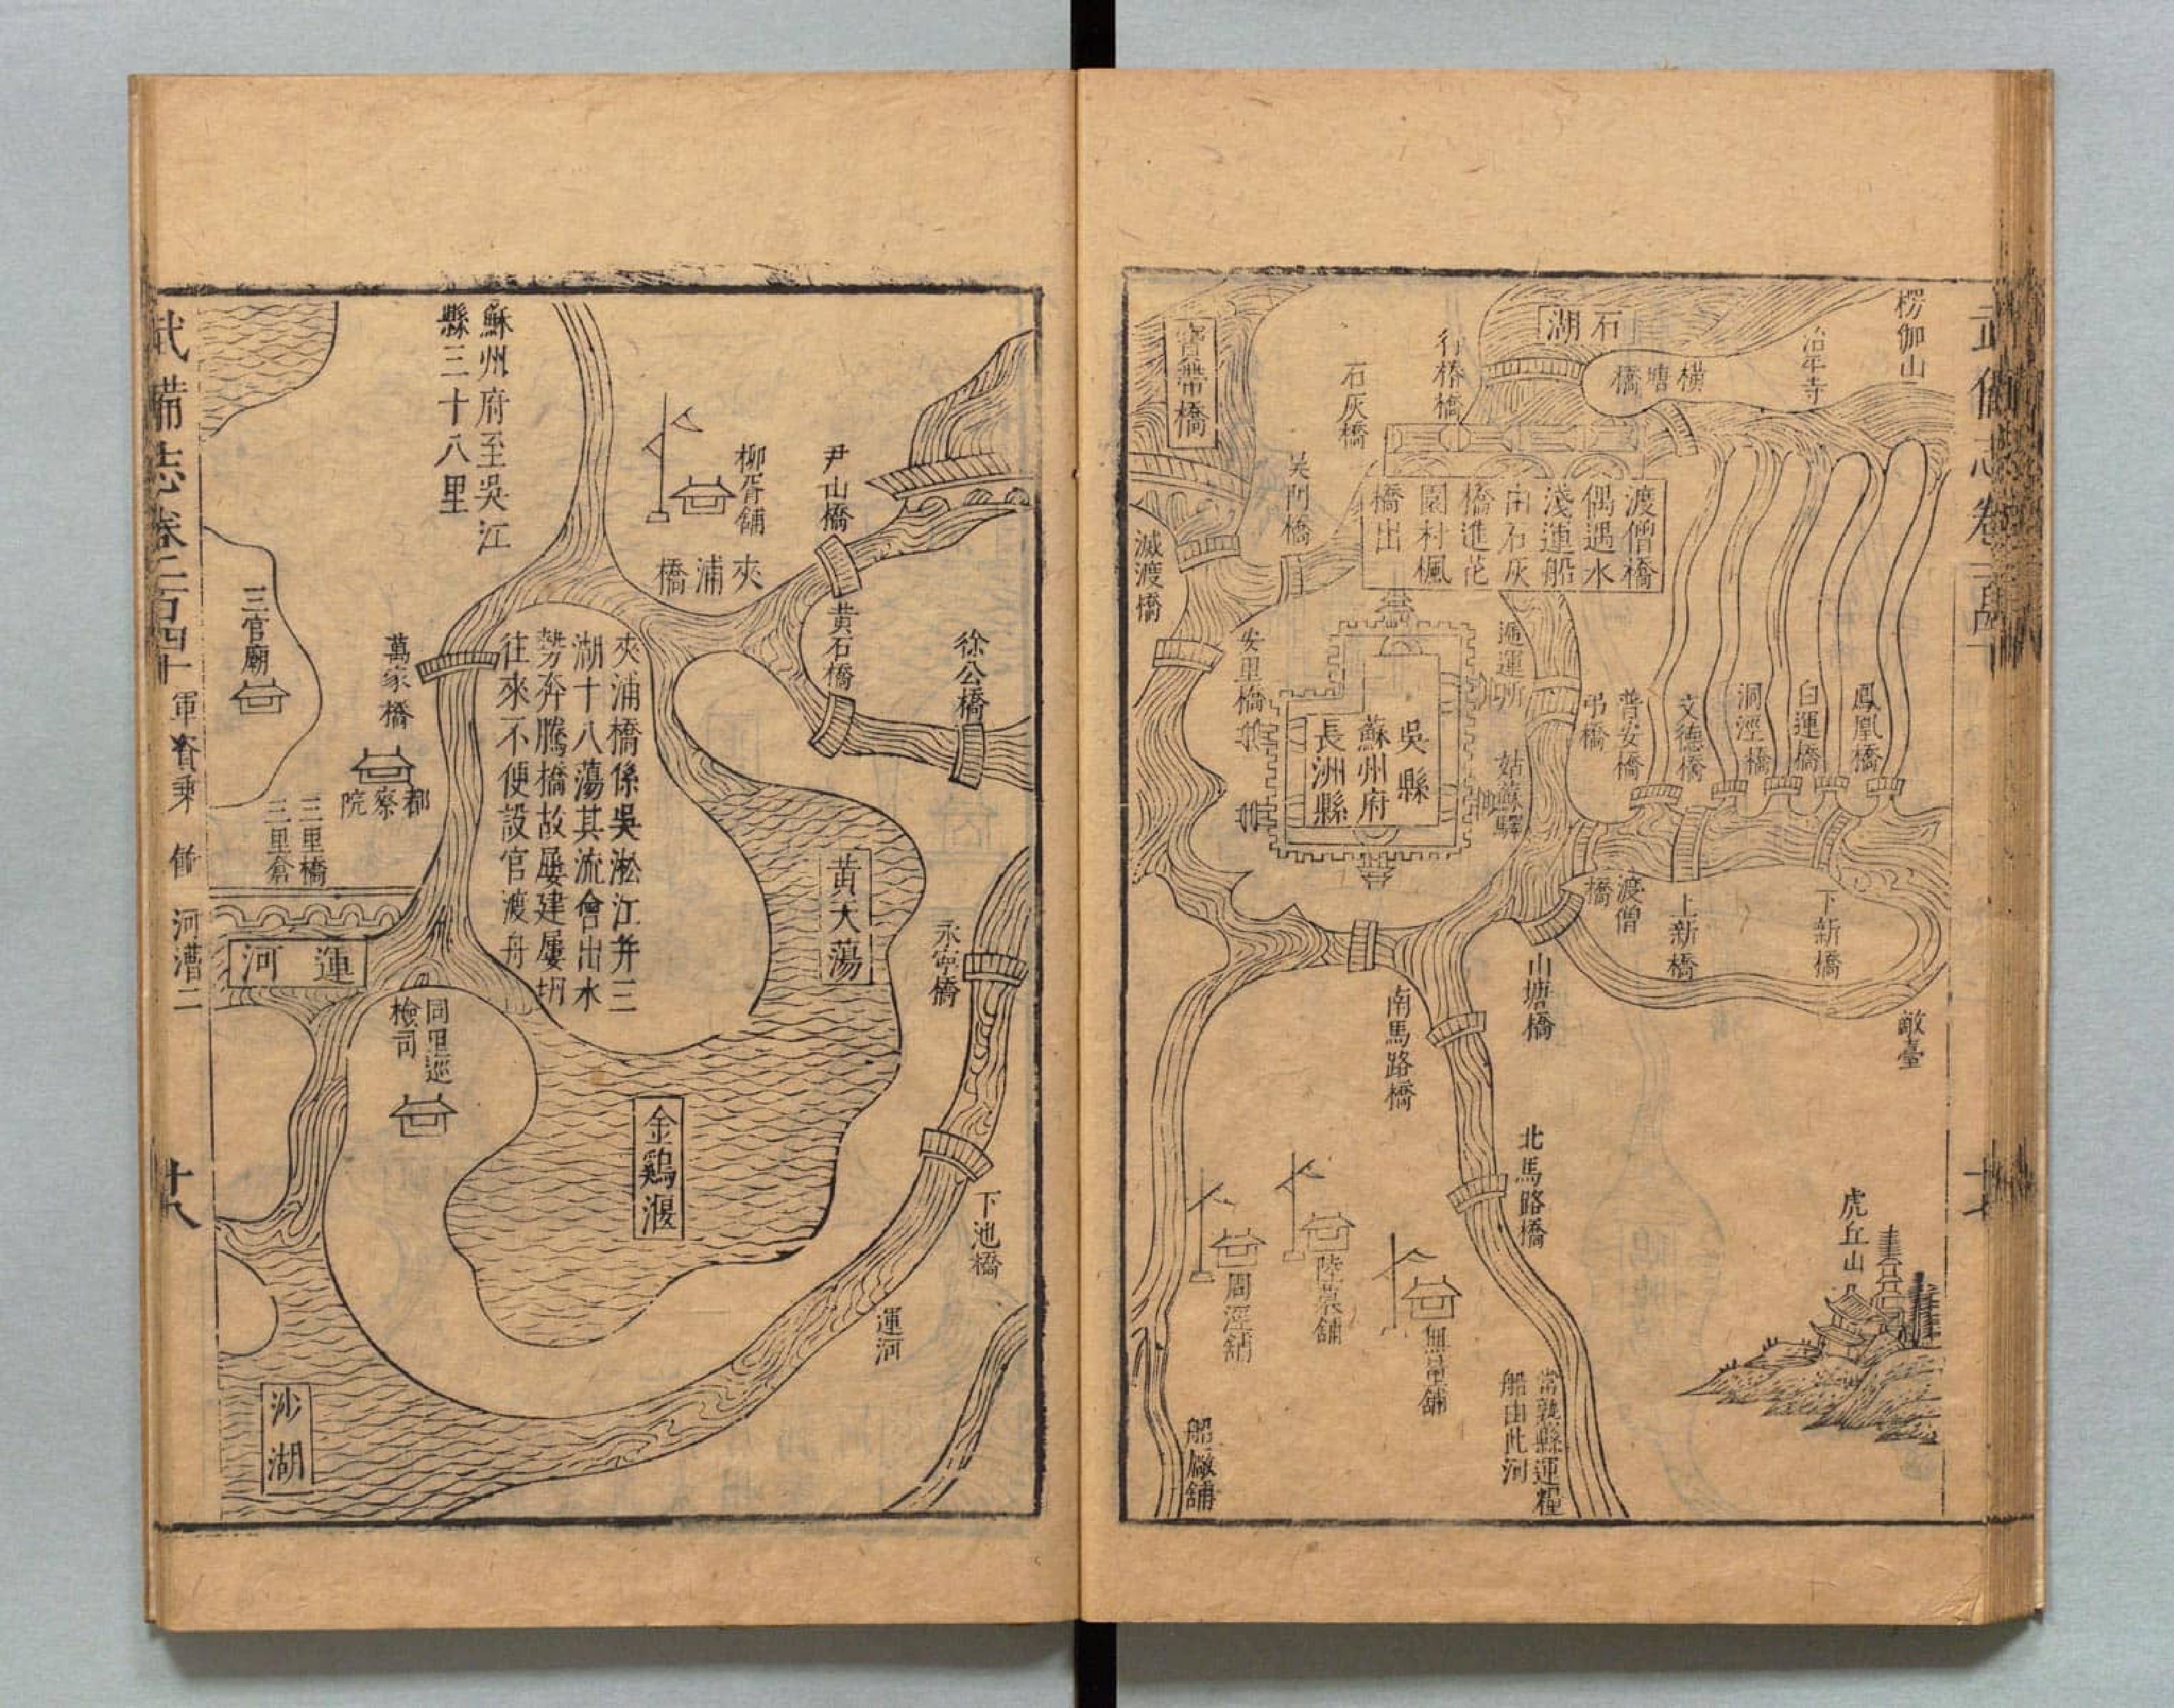 楞伽山
治平寺
石湖
橫塘橋
行橋
石灰橋
寶帶橋
吳門橋
滅渡橋
渡僧橋
偶遇水
淺運船
由石灰
橋進花
園村楓
橋出
遞運所
姑蘇驛
安里橋
吳縣
蘇州府
長洲縣
鳳凰橋
白蓮橋
洞涇橋
文德橋
普安橋
弔橋
渡僧橋
上新橋
下新橋
敵臺
山塘橋
南馬路橋
北馬路橋
虎丘山
周涇舖
陸墓舖
無量舖
船廠舖
常熟縣運糧
船由此河
尹山橋
柳胥舖
夾浦橋
黃石橋
徐公橋
蘇州府至吳江
縣三十八里
夾浦橋係吳淞江并三
湖十八蕩其流會出水
勢奔騰橋故屢建屢坍
往來不便設官渡舟
萬家橋
都察院
三官廟
三里橋
三里倉
運河
黃大蕩
永寧橋
同里巡
檢司
金鷄堰
下池橋
運河
沙湖
武備志卷二百四十
軍資乘
河漕二
十八